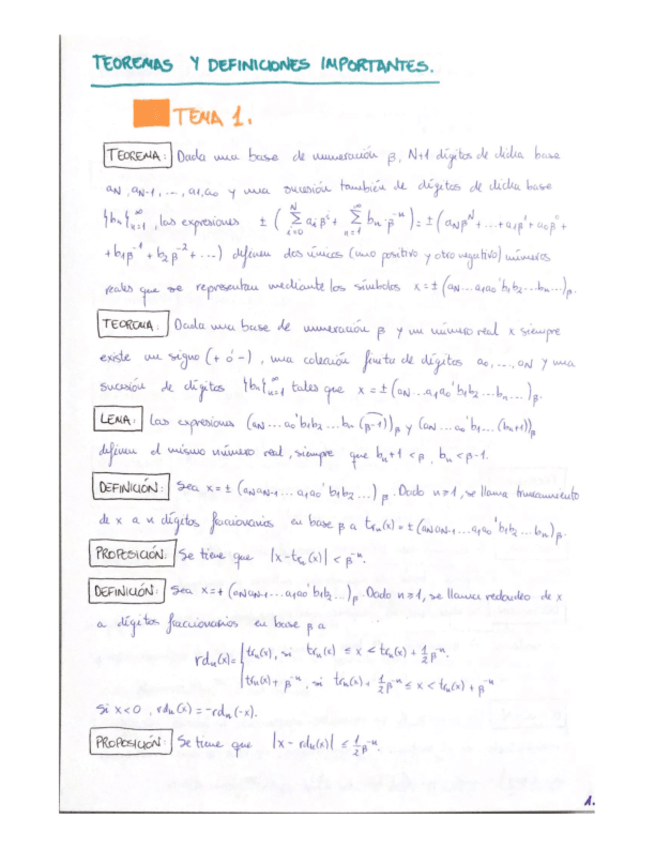 TEOREMAS Y DEFINICIONES IMPORTANTES.
TEMA 1.
TEOREMA: Dada una base de numeración β, N+1 dígitos de dicha base
aN, aN-1, ..., a1, a0 y una sucesión también de dígitos de dicha base
{bn}_{n=1}^∞, las expresiones ± ( ∑_{i=0}^{N} ai β^i + ∑_{n=1}^{∞} bn·β^{-n} ) = ± (aN β^N + ... + a1 β^1 + a0 β^0 +
+ b1 β^{-1} + b2 β^{-2} + ...) definen dos únicos (uno positivo y otro negativo) números
reales que se representan mediante los símbolos x = ± (aN ... a1 a0 ' b1 b2 ... bn ...)β.
TEOREMA: Dada una base de numeración β y un número real x siempre
existe un signo (+ ó -), una colección finita de dígitos a0, ..., aN y una
sucesión de dígitos {bn}_{n=1}^∞ tales que x = ± (aN ... a1 a0 ' b1 b2 ... bn ...)β.
LEMA: Las expresiones (aN ... a0 ' b1 b2 ... bn (β-1))β y (aN ... a0 ' b1 ... (bn+1))β
definen el mismo número real, siempre que bn+1 < β, bn < β-1.
DEFINICIÓN: Sea x = ± (aN aN-1 ... a1 a0 ' b1 b2 ...)β. Dado n ≥ 1, se llama truncamiento
de x a n dígitos fraccionarios en base β a trn(x) = ± (aN aN-1 ... a1 a0 ' b1 b2 ... bn)β.
PROPOSICIÓN: Se tiene que |x - trn(x)| < β^{-n}.
DEFINICIÓN: Sea x = + (aN aN-1 ... a1 a0 ' b1 b2 ...)β. Dado n ≥ 1, se llama redondeo de x
a dígitos fraccionarios en base β a
rdn(x) = { trn(x), si trn(x) ≤ x < trn(x) + 1/2 β^{-n}.
trn(x) + β^{-n}, si trn(x) + 1/2 β^{-n} ≤ x < trn(x) + β^{-n}
Si x < 0, rdn(x) = -rdn(-x).
PROPOSICIÓN: Se tiene que |x - rdn(x)| ≤ 1/2 β^{-n}.
1.